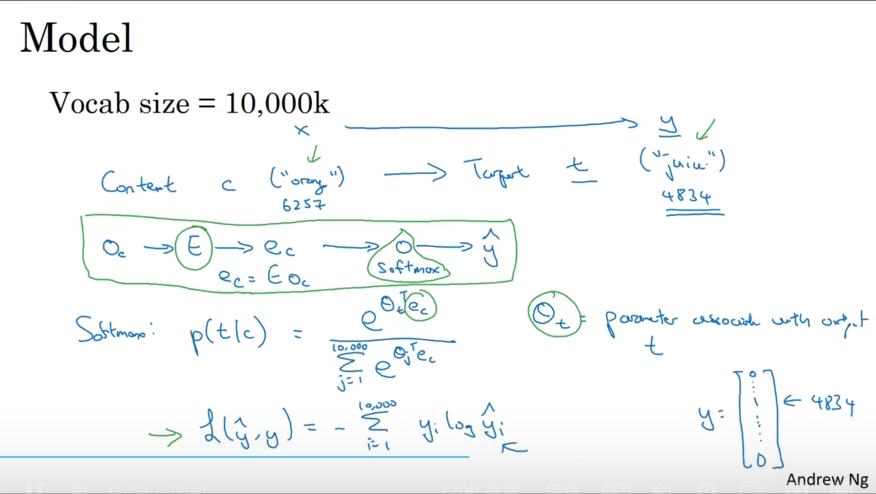 Model
Vocab size = 10,000k
x → y
Content c ("orang") → Target t ("juice")
6257 4834
O_c → E → e_c → o → ŷ
softmax
e_c = E O_c
Softmax: p(t|c) = e^{θ_t^T e_c} / Σ_{j=1}^{10,000} e^{θ_j^T e_c}
θ_t = parameter associated with output t
→ ℒ(ŷ,y) = - Σ_{i=1}^{10,000} y_i log ŷ_i
y = [0 ⋮ 1 ⋮ 0] ← 4834
Andrew Ng